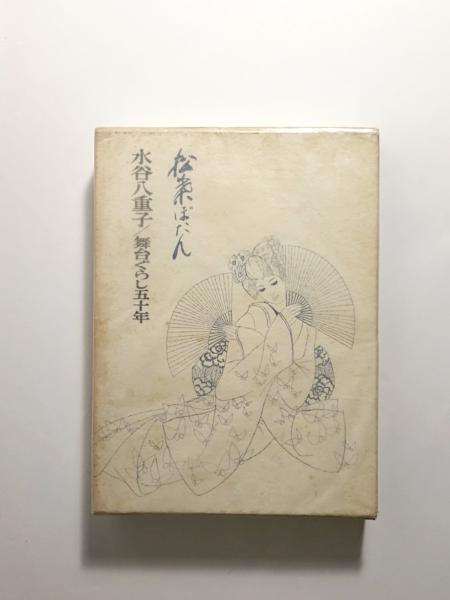 松葉ぼたん
水谷八重子／舞台ぐらし五十年